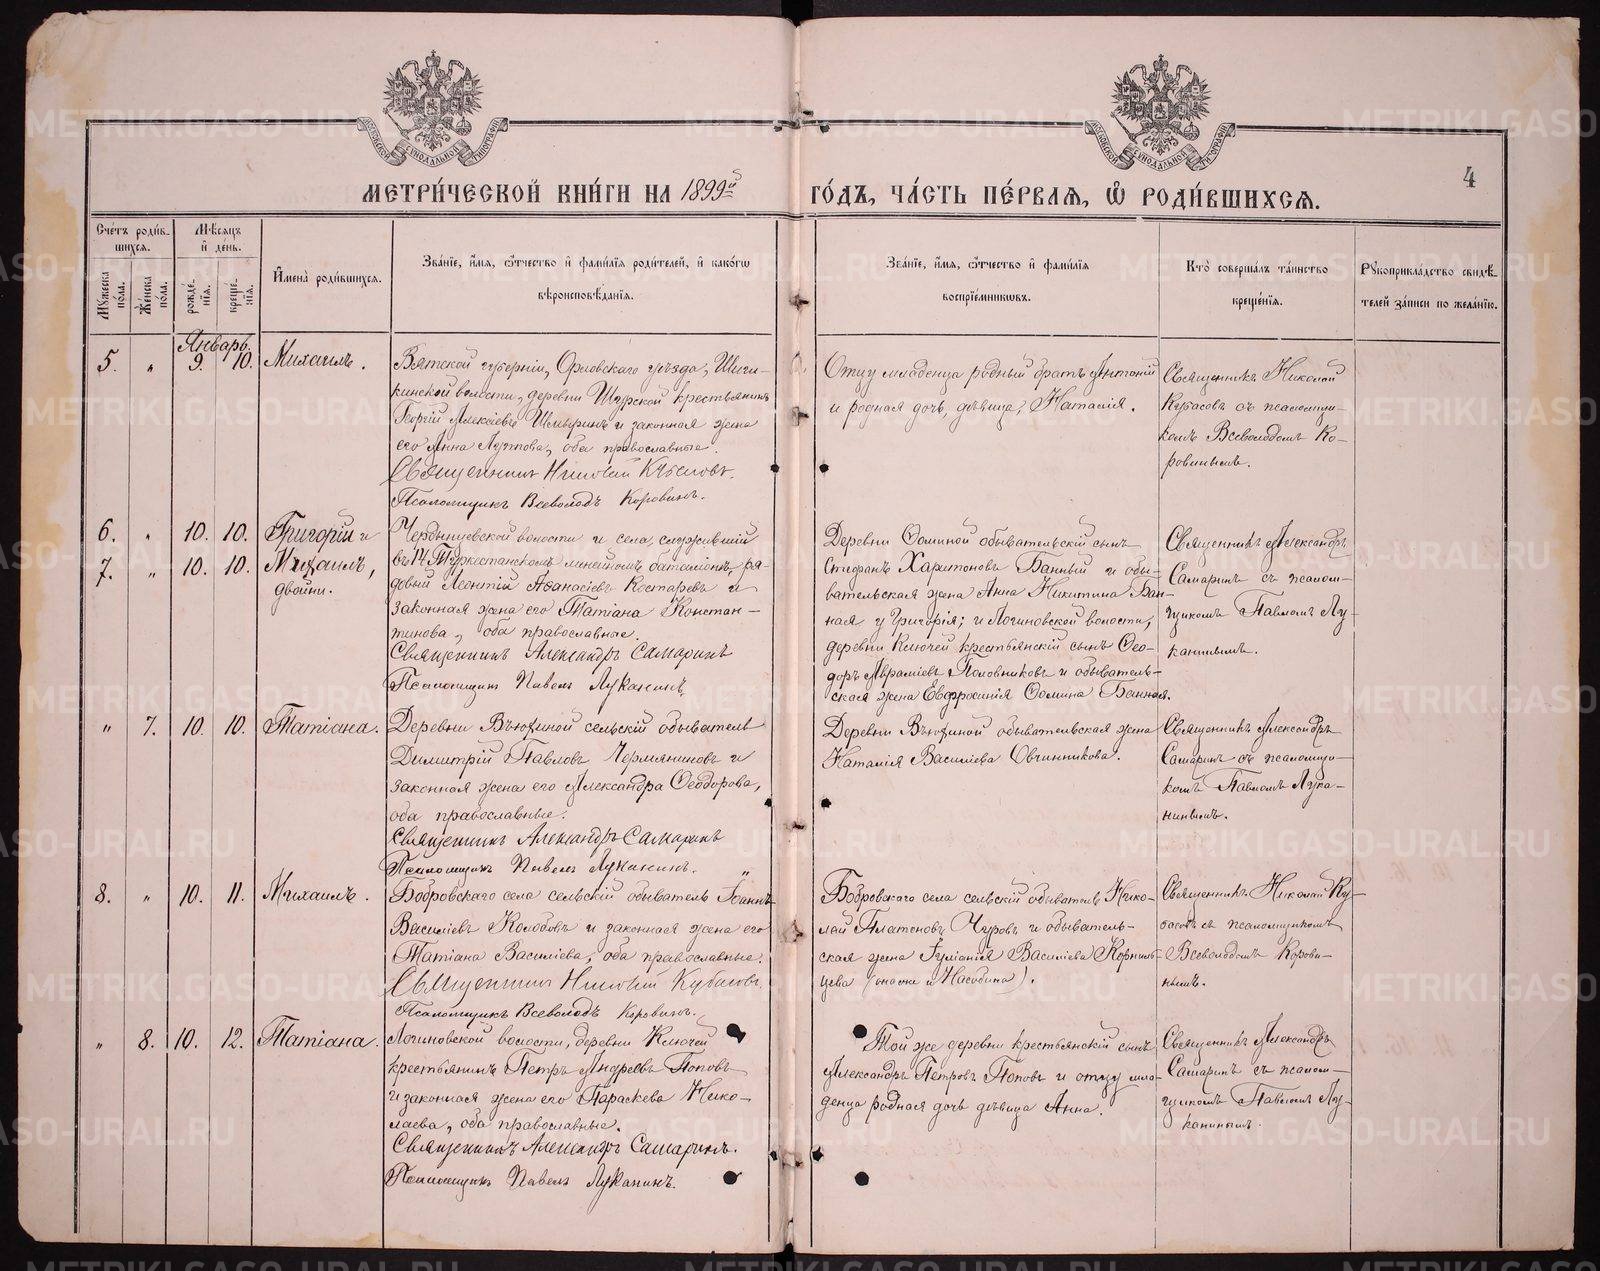 МОСКОВСКОЙ СѴНОДАЛЬНОЙ ТИПОГРАФІИ
МОСКОВСКОЙ СѴНОДАЛЬНОЙ ТИПОГРАФІИ
4
МЕТРИ́ЧЕСКОЙ КНИ́ГИ НА 1899й
ГО́ДЪ, ЧА́СТЬ ПЕ́РВАѦ, Ѡ҆ РОДИ́ВШИХСѦ.
Сче́тъ роди́в-
шихсѧ.
Мꙋ́жеска по́ла.
Же́нска по́ла.
Мѣ́сѧцъ и҆ де́нь.
рожде́-нїѧ.
креще́-нїѧ.
И҆мена̀ роди́вшихсѧ.
Зва́нїе, и҆́мѧ, ѻ҆́тчество и҆ фами́лїѧ роди́телей, и҆ како́гѡ
вѣроисповѣ́данїѧ.
Зва́нїе, и҆́мѧ, ѻ҆́тчество и҆ фами́лїѧ
воспрїе́мникѡвъ.
Кто̀ соверша́лъ та́инство
креще́нїѧ.
Рꙋкоприкла́дство свидѣ́-
телей за́писи по жела́нїю.
Январь.
5. „ 9. 10. Михаилъ.
Вятской губерніи, Орловскаго уѣзда,
кинской волости, деревни Щурской крестьянинъ
Георгій Алексіевъ и законная жена
его Анна оба православные.
Священникъ Николай Кубасовъ.
Псаломщикъ Всеволодъ Коровинъ.
Отцу младенца родный братъ Антоній
и родная дочь, дѣвица, Наталія.
Священникъ Николай
Кубасовъ съ псаломщи-
комъ Всеволодомъ Ко-
ровинымъ.
6. „ 10. 10. Григорій и
7. „ 10. 10. Михаилъ,
двойни.
волости и села, служившій
въ 14 Туркестанскомъ линейномъ баталіонѣ, ря-
довый Леонтій Аѳанасіевъ Костаревъ и
законная жена его Татіана Констан-
тинова, оба православные.
Священникъ Александръ Самаринъ
Псаломщикъ Павелъ Луканинъ
Деревни Ѳоминой обывательскій сынъ
Стефанъ Харитоновъ Банный и обы-
вательская жена Анна Никитина Бан-
ная у Григорія; и Логиновской волости,
деревни Ключей крестьянскій сынъ Ѳео-
доръ Авраміевъ Половниковъ и обыватель-
ская жена Евфросинія Ѳомина Банная.
Священникъ Александръ
Самаринъ съ псалом-
щикомъ Павломъ Лу-
канинымъ.
„ 7. 10. 10. Татіана.
Деревни Вьюхиной сельскій обыватель
Димитрій Павловъ Чермяниновъ и
законная жена его Александра Ѳеодорова,
оба православные.
Священникъ Александръ Самаринъ
Псаломщикъ Павелъ Луканинъ.
Деревни Вьюхиной обывательская жена
Наталія Василіева Овчинникова.
Священникъ Александръ
Самаринъ съ псаломщи-
комъ Павломъ Лука-
нинымъ.
8. „ 10. 11. Михаилъ.
Бобровскаго села сельскій обыватель Іоаннъ
Василіевъ Колобовъ и законная жена его
Татіана Василіева, оба православные.
Священникъ Николай Кубасовъ.
Псаломщикъ Всеволодъ Коровинъ.
Бобровскаго села сельскій обыватель Нико-
лай Платоновъ Чуровъ и обыватель-
ская жена Іуліанія Василіева Корниль-
цева (она же и Насодина).
Священникъ Николай Ку-
басовъ съ псаломщикомъ
Всеволодомъ Корови-
нымъ.
„ 8. 10. 12. Татіана.
Логиновской волости, деревни Ключей
крестьянинъ Петръ Андреевъ Поповъ
и законная жена его Параскева Нико-
лаева, оба православные.
Священникъ Александръ Самаринъ.
Псаломщикъ Павелъ Луканинъ.
Той же деревни крестьянскій сынъ
Александръ Петровъ Поповъ и отцу мла-
денца родная дочь дѣвица Анна.
Священникъ Александръ
Самаринъ съ псалом-
щикомъ Павломъ Лу-
канинымъ.
METRIKI.GASO-URAL.RU